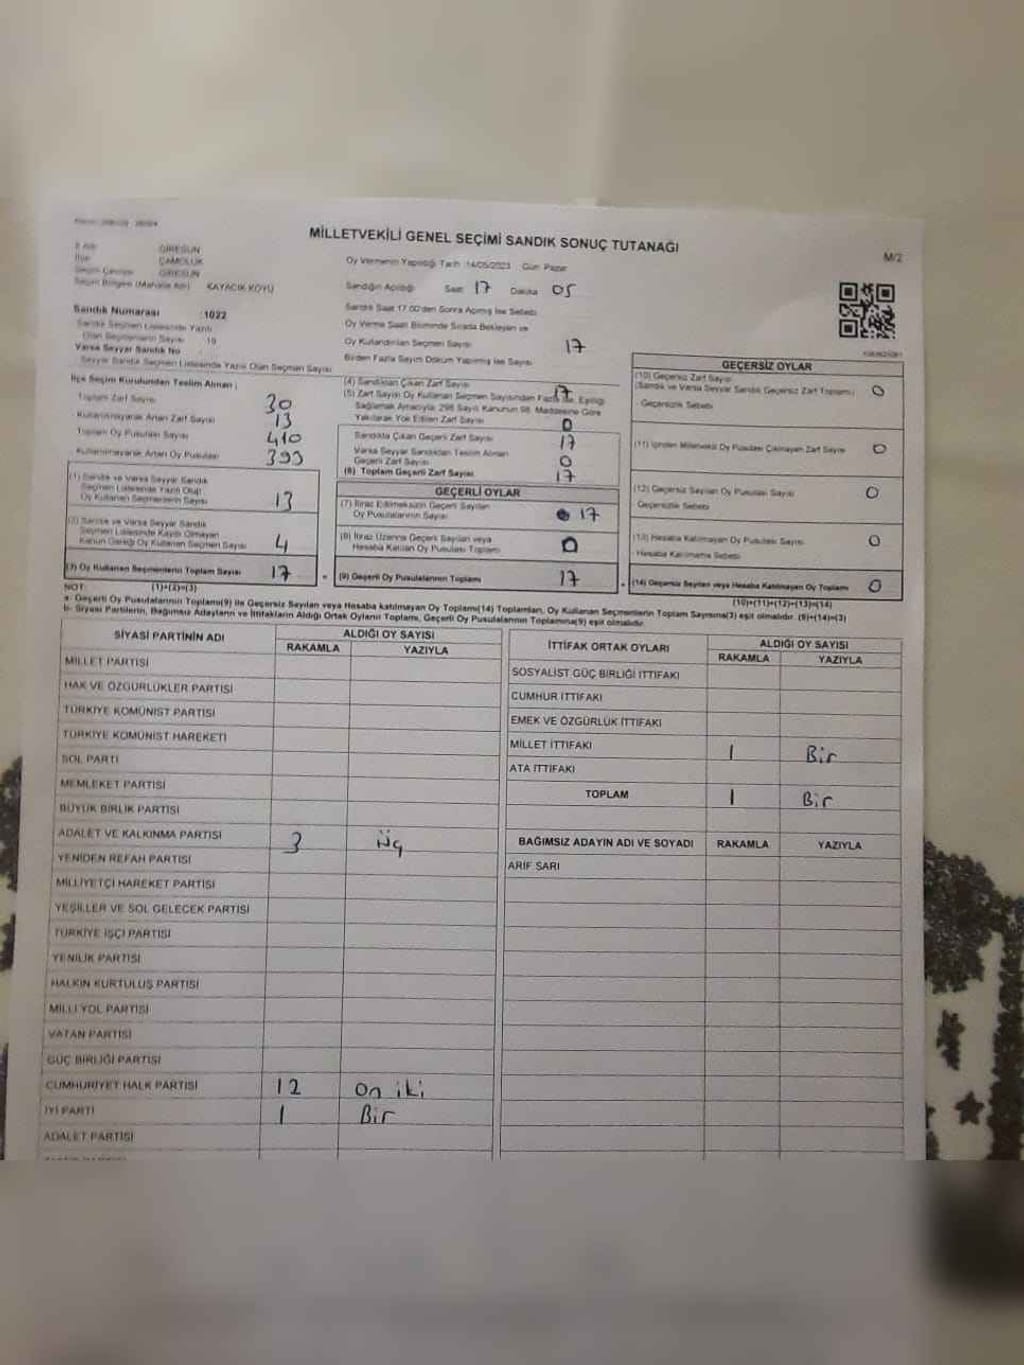 MİLLETVEKİLİ GENEL SEÇİMİ SANDIK SONUÇ TUTANAĞI
M/2
İlçe
GİRESUN
ÇAMOLUK
GİRESUN
Seçim Bölgesi (Mahalle Adı) KAYACIK KÖYÜ
Oy Vermenin Yapıldığı Tarih 14/05/2023 Gün Pazar
Sandığın Açıldığı Saat 17 Dakika 05
Sandık Saat 17.00'den Sonra Açılmış İse Sebebi
Oy Verme Saati Bitiminde Sırada Bekleyen ve
Oy Kullandırılan Seçmen Sayısı 17
Birden Fazla Sayım Döküm Yapılmış İse Sayısı
Sandık Numarası : 1022
Sandık Seçmen Listesinde Yazılı
Olan Seçmenlerin Sayısı
Varsa Seyyar Sandık No
Seyyar Sandık Seçmen Listesinde Yazılı Olan Seçmen Sayısı
İlçe Seçim Kurulundan Teslim Alınan ;
Toplam Zarf Sayısı 30
Kullanılmayarak Artan Zarf Sayısı 13
Toplam Oy Pusulası Sayısı 410
Kullanılmayarak Artan Oy Pusulası 393
(1) Sandık ve Varsa Seyyar Sandık
Seçmen Listesinde Yazılı Olup
Oy Kullanan Seçmenlerin Sayısı 13
(2) Sandık ve Varsa Seyyar Sandık
Seçmen Listesinde Kayıtlı Olmayan
Kanun Gereği Oy Kullanan Seçmen Sayısı 4
(3) Oy Kullanan Seçmenlerin Toplam Sayısı 17
(4) Sandıktan Çıkan Zarf Sayısı 17
(5) Zarf Sayısı Oy Kullanan Seçmen Sayısından Fazla İse, Eşitliği
Sağlamak Amacıyla; 298 Sayılı Kanunun 98. Maddesine Göre
Yakılarak Yok Edilen Zarf Sayısı 0
Sandıkta Çıkan Geçerli Zarf Sayısı 17
Varsa Seyyar Sandıktan Teslim Alınan
Geçerli Zarf Sayısı 0
(6) Toplam Geçerli Zarf Sayısı 17
GEÇERLİ OYLAR
(7) İtiraz Edilmeksizin Geçerli Sayılan
Oy Pusulalarının Sayısı 17
(8) İtiraz Üzerine Geçerli Sayılan veya
Hesaba Katılan Oy Pusulası Toplamı 0
= (9) Geçerli Oy Pusulalarının Toplamı 17
GEÇERSİZ OYLAR
(10) Geçersiz Zarf Sayısı
(Sandık ve Varsa Seyyar Sandık Geçersiz Zarf Toplamı) 0
- Geçersizlik Sebebi
(11) İçinden Milletvekili Oy Pusulası Çıkmayan Zarf Sayısı 0
(12) Geçersiz Sayılan Oy Pusulası Sayısı 0
- Geçersizlik Sebebi
(13) Hesaba Katılmayan Oy Pusulası Sayısı 0
- Hesaba Katılmama Sebebi
(14) Geçersiz Sayılan veya Hesaba Katılmayan Oy Toplamı 0
NOT: (1)+(2)=(3)
(10)+(11)+(12)+(13)=(14)
a- Geçerli Oy Pusulalarının Toplamı(9) ile Geçersiz Sayılan veya Hesaba katılmayan Oy Toplamı(14) Toplamları, Oy Kullanan Seçmenlerin Toplam Sayısına(3) eşit olmalıdır. (9)+(14)=(3)
b- Siyasi Partilerin, Bağımsız Adayların ve İttifakların Aldığı Ortak Oyların Toplamı, Geçerli Oy Pusulalarının Toplamına(9) eşit olmalıdır.
SİYASİ PARTİNİN ADI
ALDIĞI OY SAYISI
RAKAMLA YAZIYLA
MİLLET PARTİSİ
HAK VE ÖZGÜRLÜKLER PARTİSİ
TÜRKİYE KOMÜNİST PARTİSİ
TÜRKİYE KOMÜNİST HAREKETİ
SOL PARTİ
MEMLEKET PARTİSİ
BÜYÜK BİRLİK PARTİSİ
ADALET VE KALKINMA PARTİSİ 3 üç
YENİDEN REFAH PARTİSİ
MİLLİYETÇİ HAREKET PARTİSİ
YEŞİLLER VE SOL GELECEK PARTİSİ
TÜRKİYE İŞÇİ PARTİSİ
YENİLİK PARTİSİ
HALKIN KURTULUŞ PARTİSİ
MİLLİ YOL PARTİSİ
VATAN PARTİSİ
GÜÇ BİRLİĞİ PARTİSİ
CUMHURİYET HALK PARTİSİ 12 on iki
İYİ PARTİ 1 Bir
ADALET PARTİSİ
İTTİFAK ORTAK OYLARI
ALDIĞI OY SAYISI
RAKAMLA YAZIYLA
SOSYALİST GÜÇ BİRLİĞİ İTTİFAKI
CUMHUR İTTİFAKI
EMEK VE ÖZGÜRLÜK İTTİFAKI
MİLLET İTTİFAKI 1 Bir
ATA İTTİFAKI
TOPLAM 1 Bir
BAĞIMSIZ ADAYIN ADI VE SOYADI RAKAMLA YAZIYLA
ARİF SARI